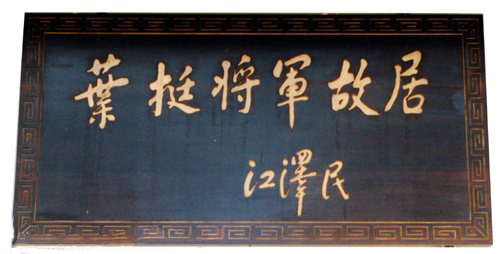 葉挺将軍故居
江澤民